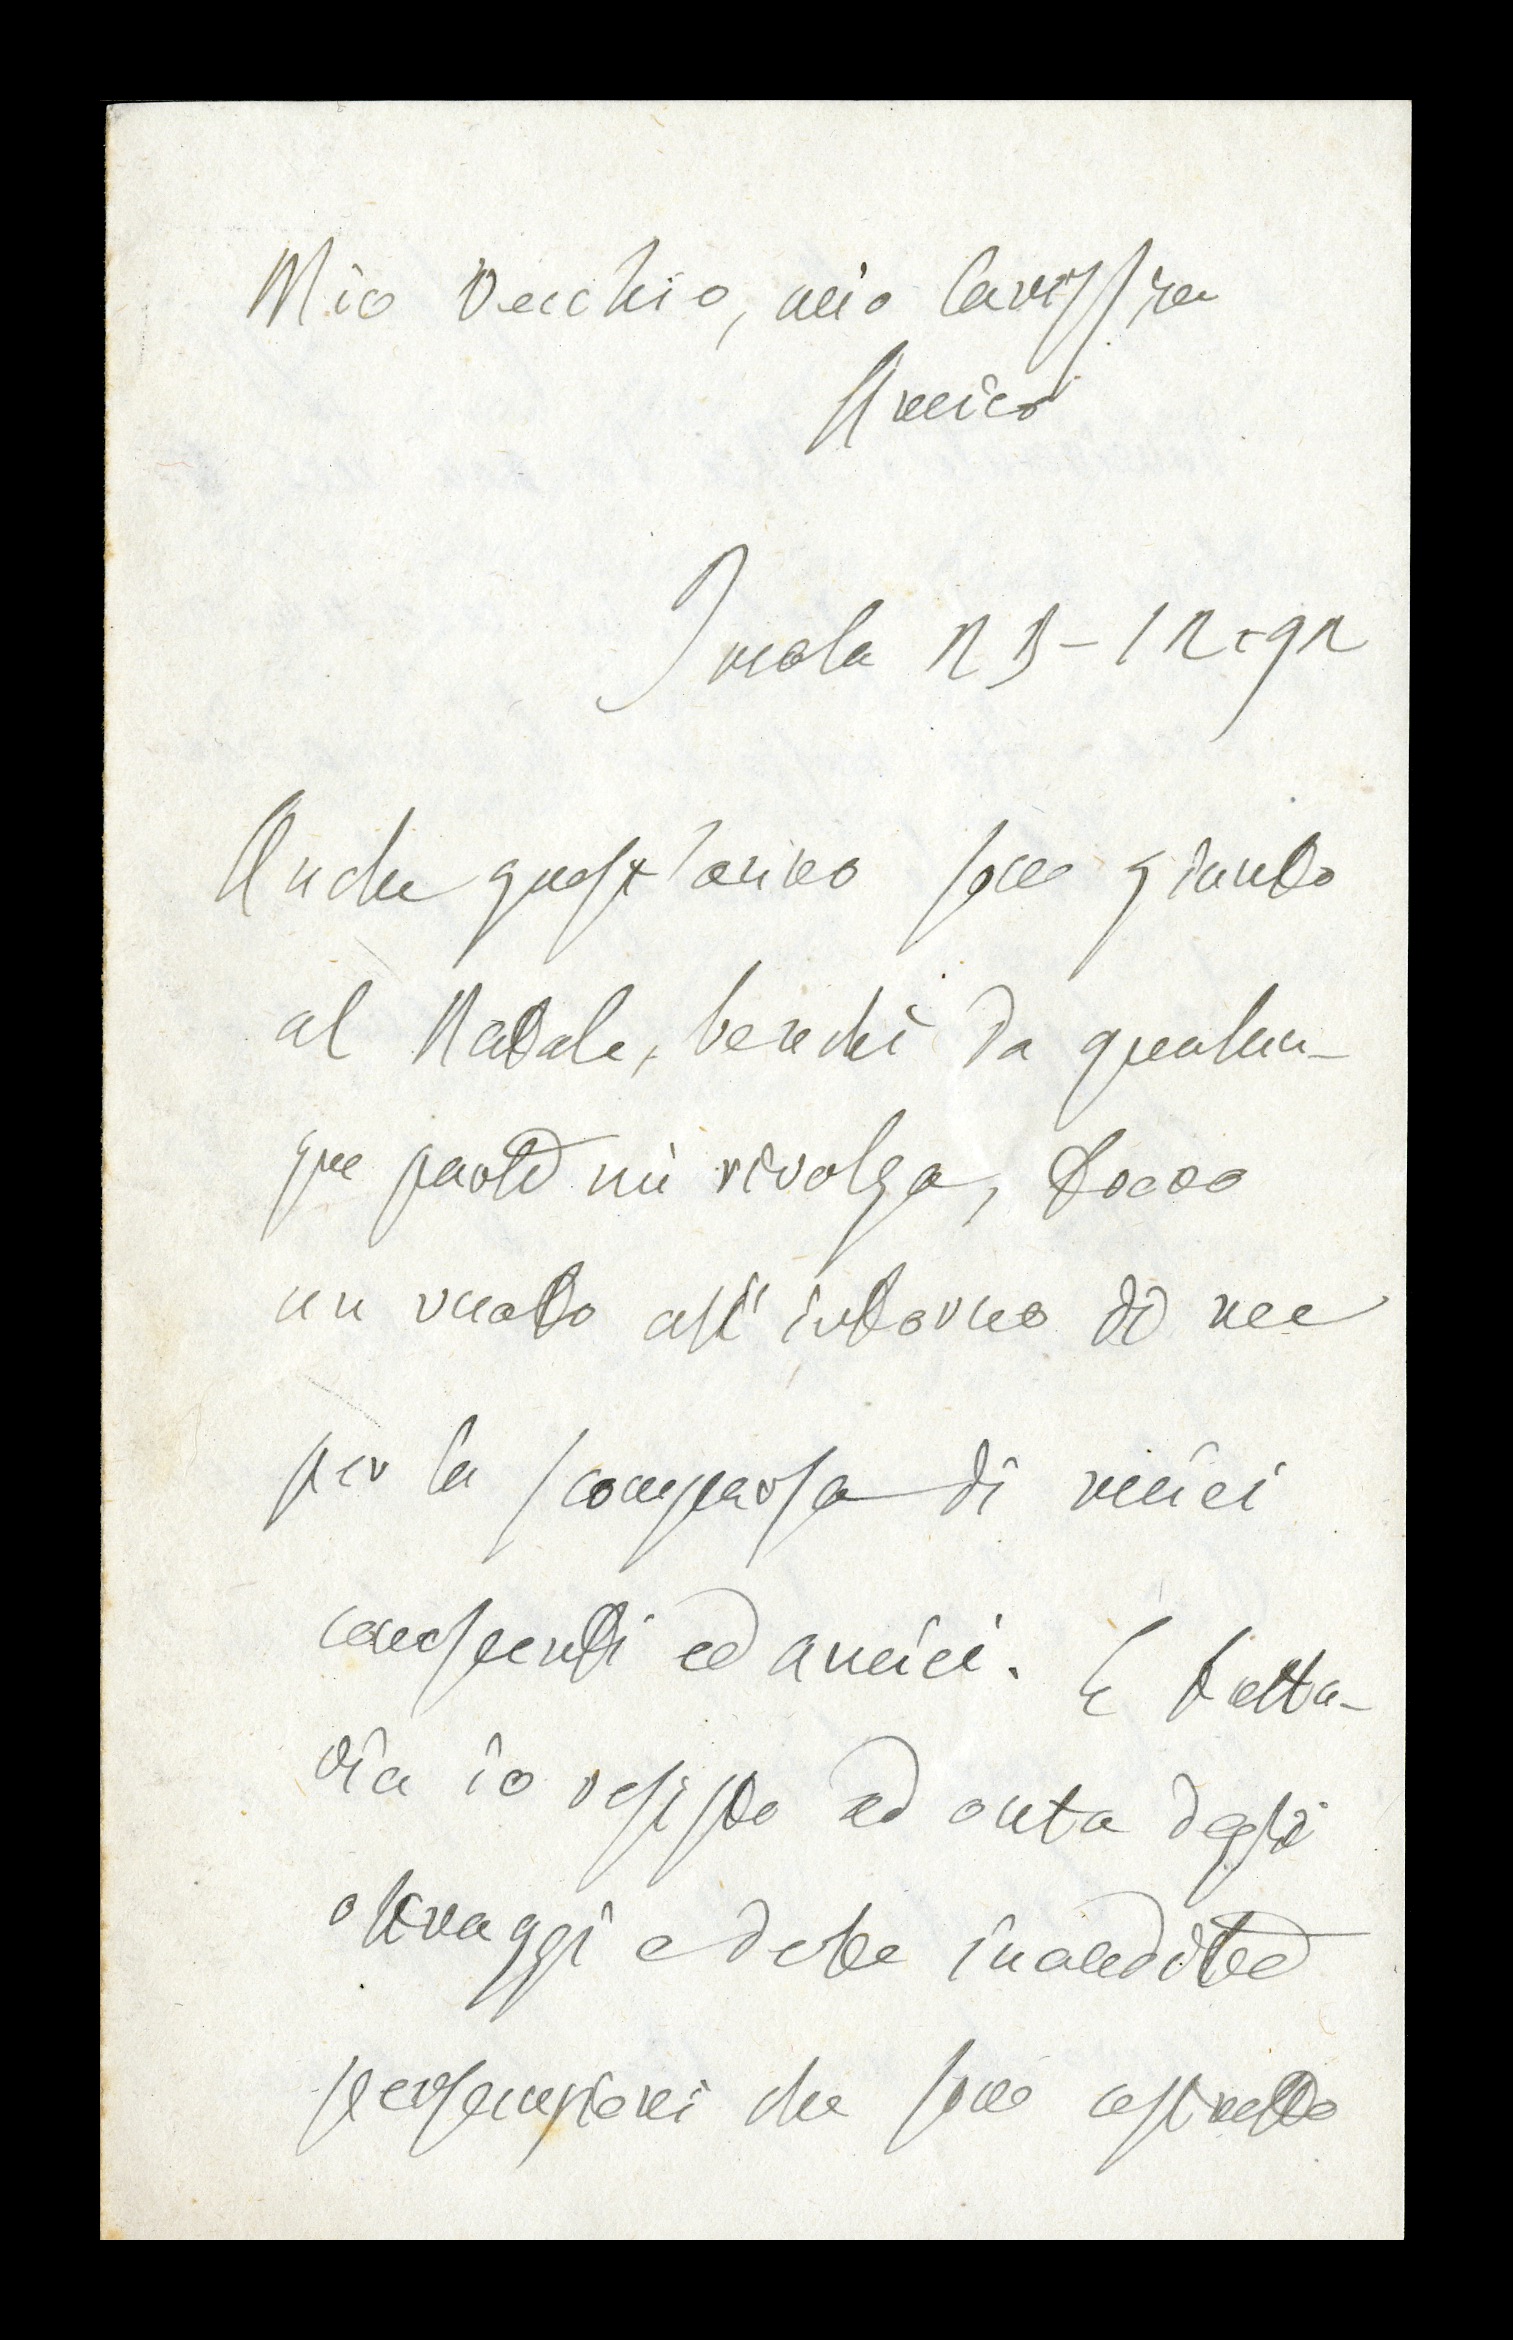 Mio Vecchio, mio Cariss/mo
Amico
Imola 23-12-92
Anche quest'anno sono giunto
al Natale, benchè da qualun-
que parte mi rivolga, trovo
un vuoto all'intorno di me
per la scomparsa di miei
conoscenti ed amici. E tutta-
via io resisto ad onta degli
oltraggi e delle inaudite
persecuzioni che sono costretto